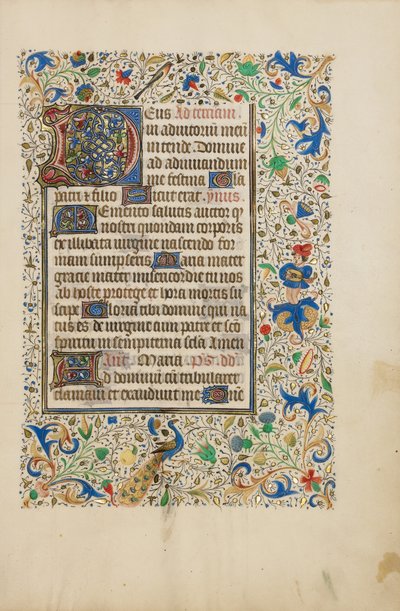 Deus Ad terciam
in adiutoriu meu
intende Domine
ad adiuuandum
me festina Gla
patri et filio Sicut erat ymns
Memento salutis auctor q
nostri quondam corporis
ex illibata uirgine nascendo for
mam sumpseris Maria mater
gracie mater misericordie tu nos
ab hoste protege et hora mortis su
scipe Gloria tibi domine qui na
tus es de uirgine cum patre et sco
spiritu in sempiterna secla Amen
Ant Maria Ps dd
Ad dominu cu tribularer
clamaui et exaudiuit me